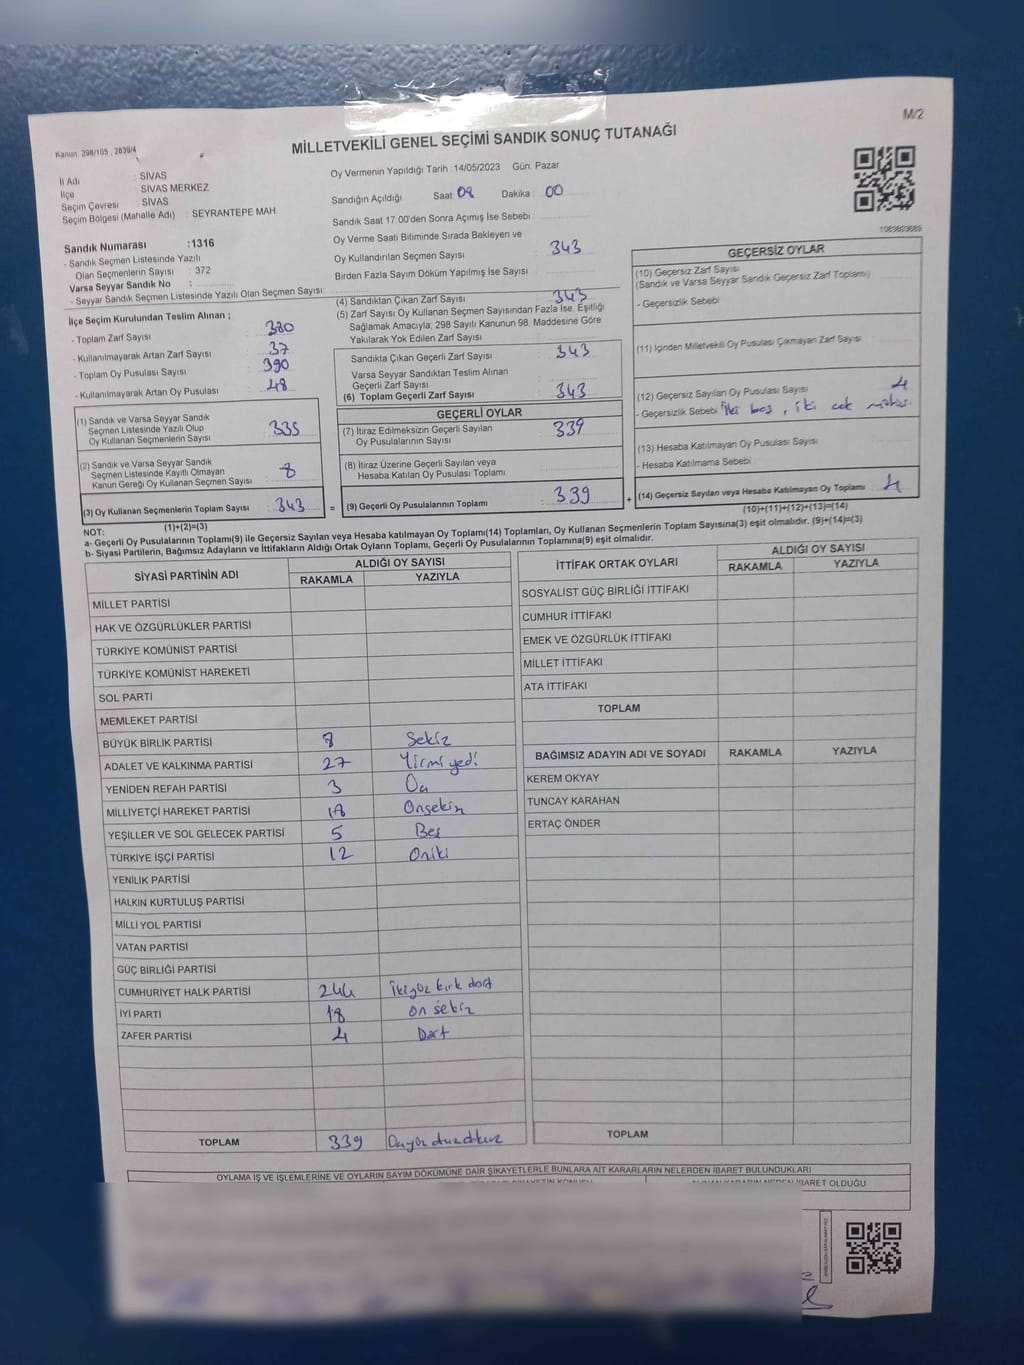 M/2
Kanun. 298/105 , 2839/4
MİLLETVEKİLİ GENEL SEÇİMİ SANDIK SONUÇ TUTANAĞI
İl Adı : SİVAS
İlçe : SİVAS MERKEZ
Seçim Çevresi : SİVAS
Seçim Bölgesi (Mahalle Adı) : SEYRANTEPE MAH
Sandık Numarası :1316
- Sandık Seçmen Listesinde Yazılı
Olan Seçmenlerin Sayısı : 372
Varsa Seyyar Sandık No :
- Seyyar Sandık Seçmen Listesinde Yazılı Olan Seçmen Sayısı:
Oy Vermenin Yapıldığı Tarih :14/05/2023 Gün: Pazar
Sandığın Açıldığı Saat: 08 Dakika : 00
Sandık Saat 17:00'den Sonra Açımış İse Sebebi :
Oy Verme Saati Bitiminde Sırada Bekleyen ve
Oy Kullandırılan Seçmen Sayısı : 343
Birden Fazla Sayım Döküm Yapılmış İse Sayısı
İlçe Seçim Kurulundan Teslim Alınan ;
- Toplam Zarf Sayısı : 380
- Kullanılmayarak Artan Zarf Sayısı : 37
- Toplam Oy Pusulası Sayısı : 390
- Kullanılmayarak Artan Oy Pusulası : 48
(1) Sandık ve Varsa Seyyar Sandık
Seçmen Listesinde Yazılı Olup
Oy Kullanan Seçmenlerin Sayısı : 335
(2) Sandık ve Varsa Seyyar Sandık
Seçmen Listesinde Kayıtlı Olmayan
Kanun Gereği Oy Kullanan Seçmen Sayısı : 8
(3) Oy Kullanan Seçmenlerin Toplam Sayısı : 343
(1)+(2)=(3)
(4) Sandıktan Çıkan Zarf Sayısı : 343
(5) Zarf Sayısı Oy Kullanan Seçmen Sayısından Fazla İse, Eşitliği
Sağlamak Amacıyla; 298 Sayılı Kanunun 98. Maddesine Göre
Yakılarak Yok Edilen Zarf Sayısı :
Sandıkta Çıkan Geçerli Zarf Sayısı : 343
Varsa Seyyar Sandıktan Teslim Alınan
Geçerli Zarf Sayısı
(6) Toplam Geçerli Zarf Sayısı : 343
GEÇERLİ OYLAR
(7) İtiraz Edilmeksizin Geçerli Sayılan
Oy Pusulalarının Sayısı : 339
(8) İtiraz Üzerine Geçerli Sayılan veya
Hesaba Katılan Oy Pusulası Toplamı
= (9) Geçerli Oy Pusulalarının Toplamı : 339
1083603689
GEÇERSİZ OYLAR
(10) Geçersiz Zarf Sayısı
(Sandık ve Varsa Seyyar Sandık Geçersiz Zarf Toplamı)
- Geçersizlik Sebebi
(11) İçinden Milletvekili Oy Pusulası Çıkmayan Zarf Sayısı
(12) Geçersiz Sayılan Oy Pusulası Sayısı : 4
- Geçersizlik Sebebi : İki boş, iki çok mühür
(13) Hesaba Katılmayan Oy Pusulası Sayısı
- Hesaba Katılmama Sebebi
+ (14) Geçersiz Sayılan veya Hesaba Katılmayan Oy Toplamı 4
(10)+(11)+(12)+(13)=(14)
NOT:
a- Geçerli Oy Pusulalarının Toplamı(9) ile Geçersiz Sayılan veya Hesaba katılmayan Oy Toplamı(14) Toplamları, Oy Kullanan Seçmenlerin Toplam Sayısına(3) eşit olmalıdır. (9)+(14)=(3)
b- Siyasi Partilerin, Bağımsız Adayların ve İttifakların Aldığı Ortak Oyların Toplamı, Geçerli Oy Pusulalarının Toplamına(9) eşit olmalıdır.
SİYASİ PARTİNİN ADI ALDIĞI OY SAYISI
RAKAMLA YAZIYLA
MİLLET PARTİSİ
HAK VE ÖZGÜRLÜKLER PARTİSİ
TÜRKİYE KOMÜNİST PARTİSİ
TÜRKİYE KOMÜNİST HAREKETİ
SOL PARTİ
MEMLEKET PARTİSİ
BÜYÜK BİRLİK PARTİSİ 8 Sekiz
ADALET VE KALKINMA PARTİSİ 27 Yirmi yedi
YENİDEN REFAH PARTİSİ 3 Üç
MİLLİYETÇİ HAREKET PARTİSİ 18 Onsekiz
YEŞİLLER VE SOL GELECEK PARTİSİ 5 Beş
TÜRKİYE İŞÇİ PARTİSİ 12 Oniki
YENİLİK PARTİSİ
HALKIN KURTULUŞ PARTİSİ
MİLLİ YOL PARTİSİ
VATAN PARTİSİ
GÜÇ BİRLİĞİ PARTİSİ
CUMHURİYET HALK PARTİSİ 244 İkiyüz kırk dört
İYİ PARTİ 18 on sekiz
ZAFER PARTİSİ 4 Dört
TOPLAM 339
İTTİFAK ORTAK OYLARI ALDIĞI OY SAYISI
RAKAMLA YAZIYLA
SOSYALİST GÜÇ BİRLİĞİ İTTİFAKI
CUMHUR İTTİFAKI
EMEK VE ÖZGÜRLÜK İTTİFAKI
MİLLET İTTİFAKI
ATA İTTİFAKI
TOPLAM
BAĞIMSIZ ADAYIN ADI VE SOYADI RAKAMLA YAZIYLA
KEREM OKYAY
TUNCAY KARAHAN
ERTAÇ ÖNDER
TOPLAM
OYLAMA İŞ VE İŞLEMLERİNE VE OYLARIN SAYIM DÖKÜMÜNE DAİR ŞİKAYETLERLE BUNLARA AİT KARARLARIN NELERDEN İBARET BULUNDUKLARI
İBARET OLDUĞU